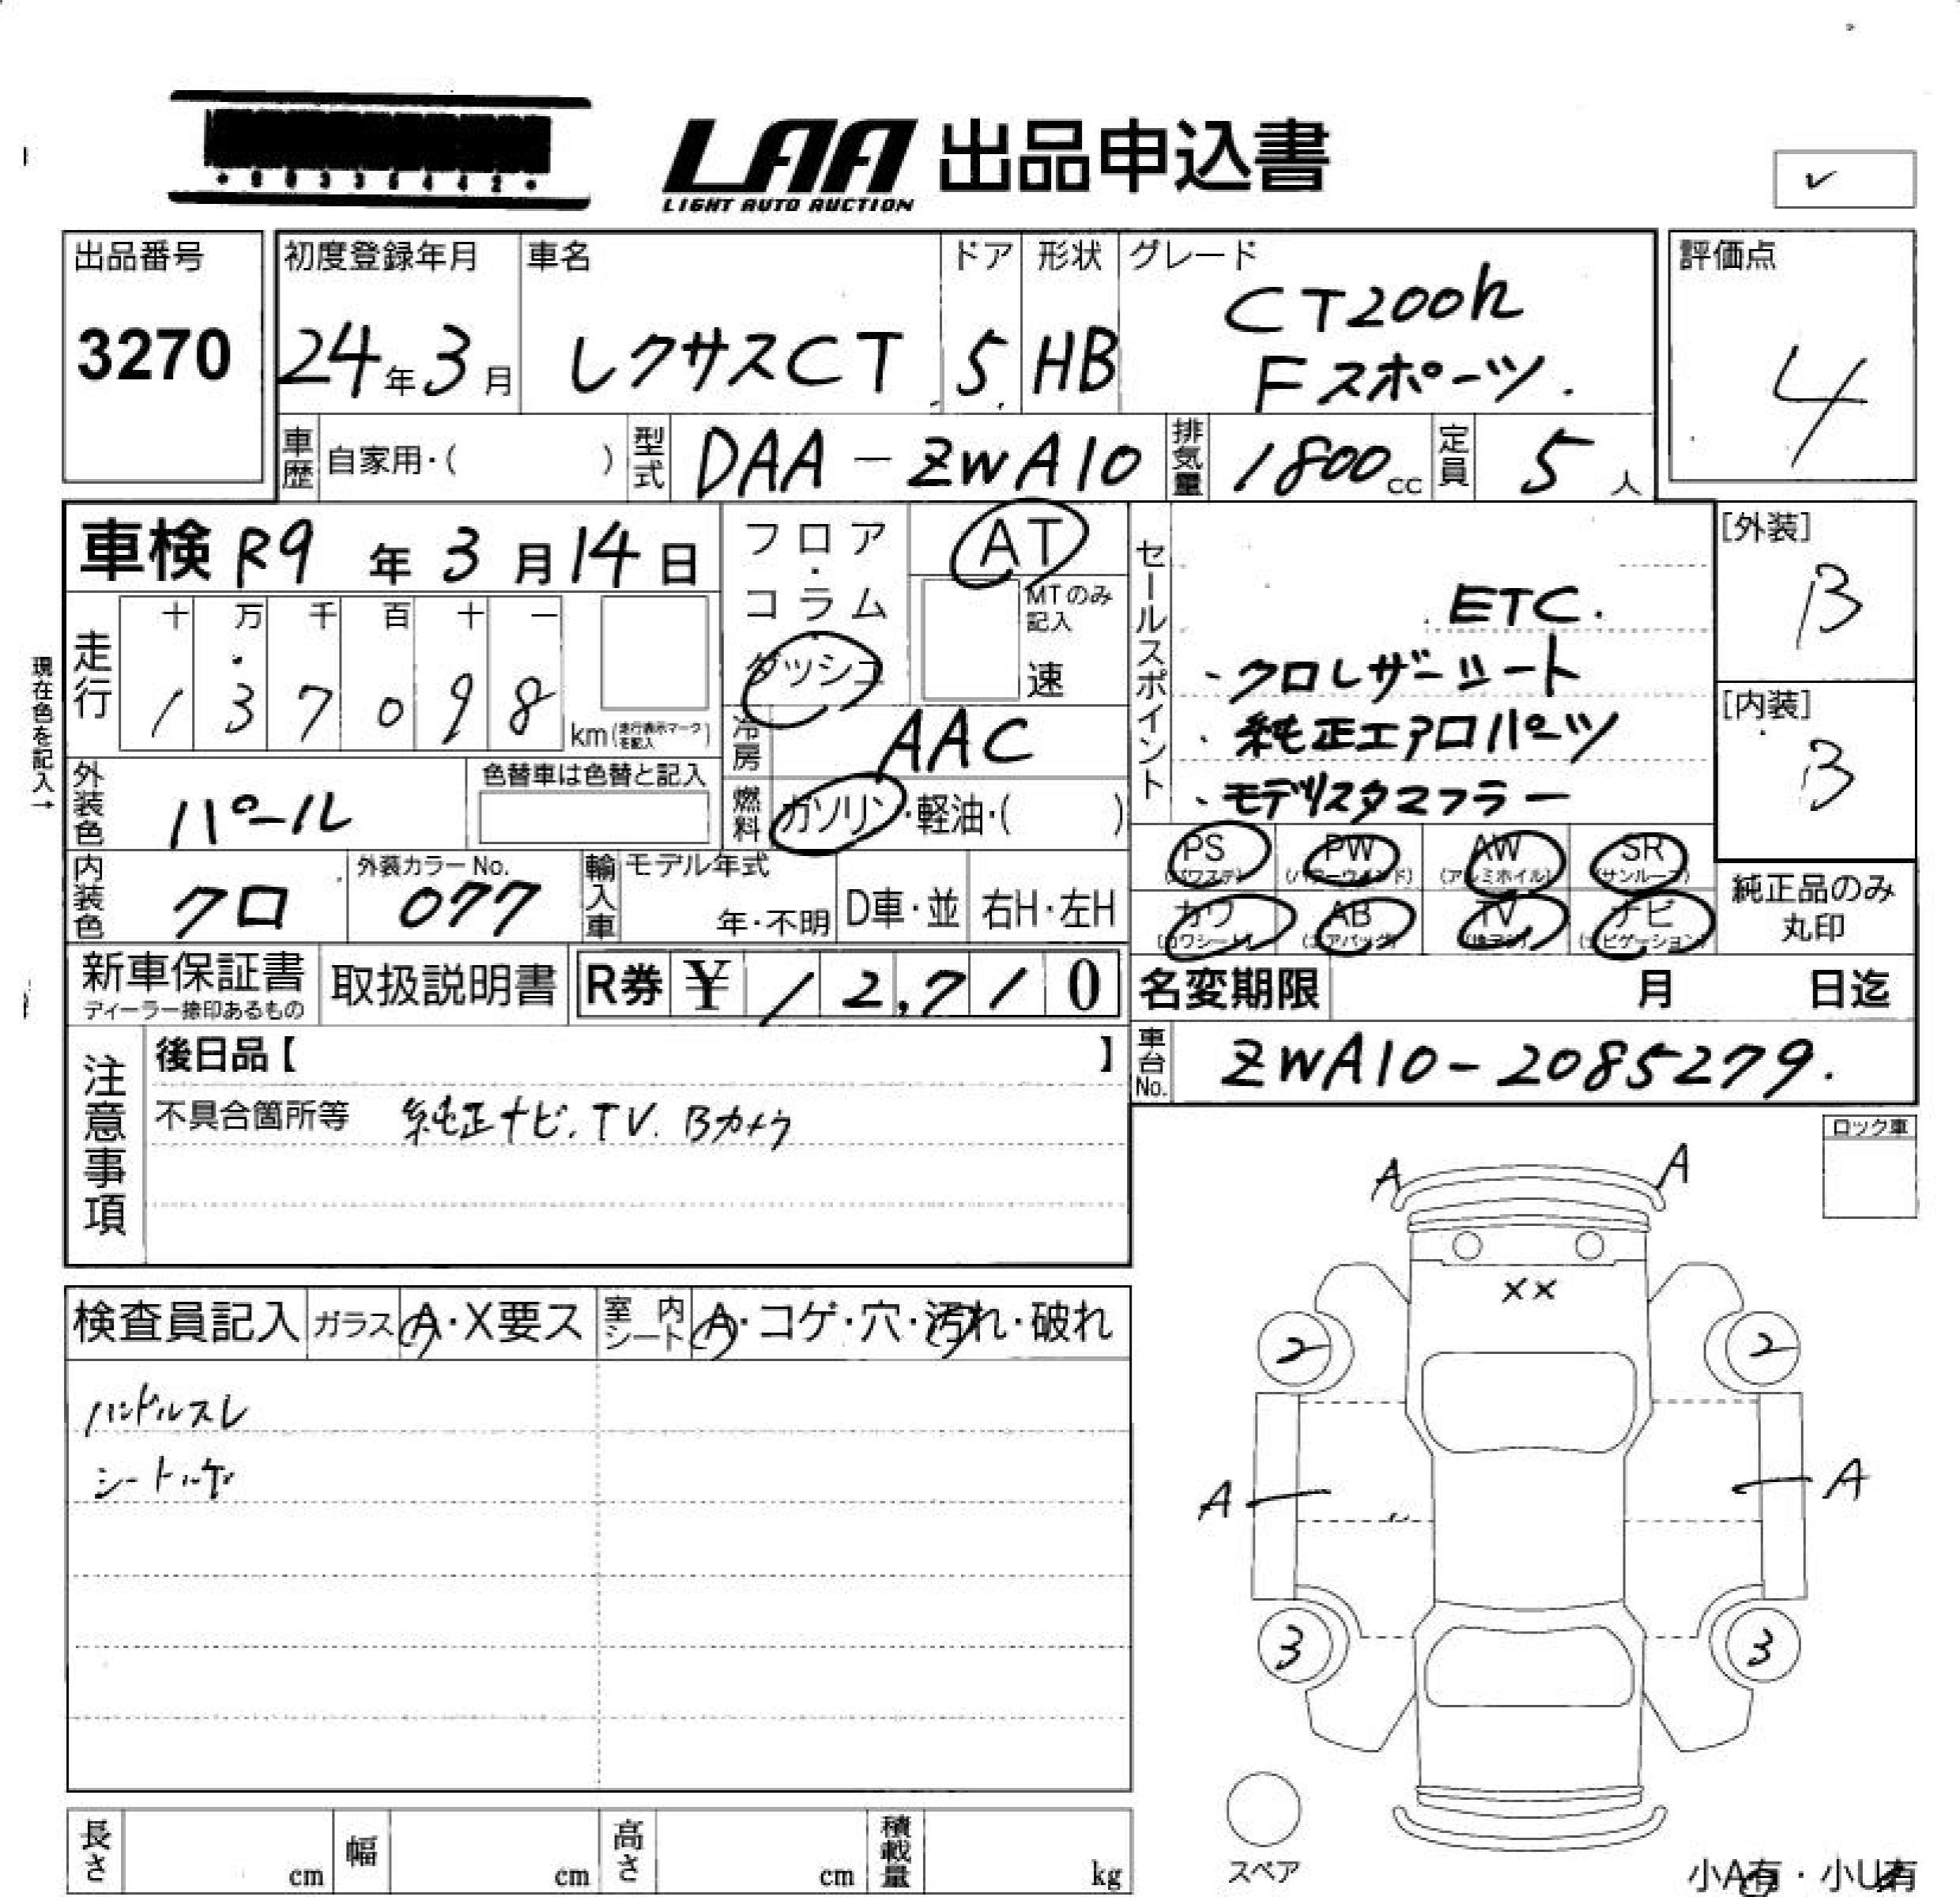 LAA 出品申込書
LIGHT AUTO AUCTION
✓
出品番号
3270
初度登録年月
24年3月
車名
レクサスCT
ドア
5
形状
HB
グレード
CT200h
Fスポーツ.
評価点
4
車歴 自家用・( )
型式 DAA-ZWA10
排気量 1800cc
定員 5人
車検 R9年3月14日
フロア・コラム・ダッシュ
AT
MTのみ記入
速
セールスポイント
ETC.
・クロレザーシート
・純正エアロパーツ
・モデリスタマフラー
[外装]
B
[内装]
B
現在色を記入→
走行
十 万 千 百 十 一
1 3 7 0 9 8
km(走行表示マークを記入)
冷房 AAC
外装色 パール
色替車は色替と記入
燃料 ガソリン・軽油・( )
PS (パワステ)
PW (パワーウインド)
AW (アルミホイル)
SR (サンルーフ)
カワ (カワシート)
AB (エアバッグ)
TV (地デジ)
ナビ (ナビゲーション)
純正品のみ
丸印
内装色 クロ
外装カラーNo.
077
輸入車
モデル年式
年・不明
D車・並
右H・左H
新車保証書
ディーラー捺印あるもの
取扱説明書
R券 ¥ 12,710
名変期限 月 日迄
車台No. ZWA10-2085279.
注意事項
後日品【 】
不具合箇所等 純正ナビ.TV.Bカメラ
ロック車
A A
XX
2 2
A A
3 3
スペア
小A有・小U有
検査員記入
ガラス A・X要ス
室内シート A・コゲ・穴・汚れ・破れ
ハンドルスレ
長さ cm
幅 cm
高さ cm
積載量 kg